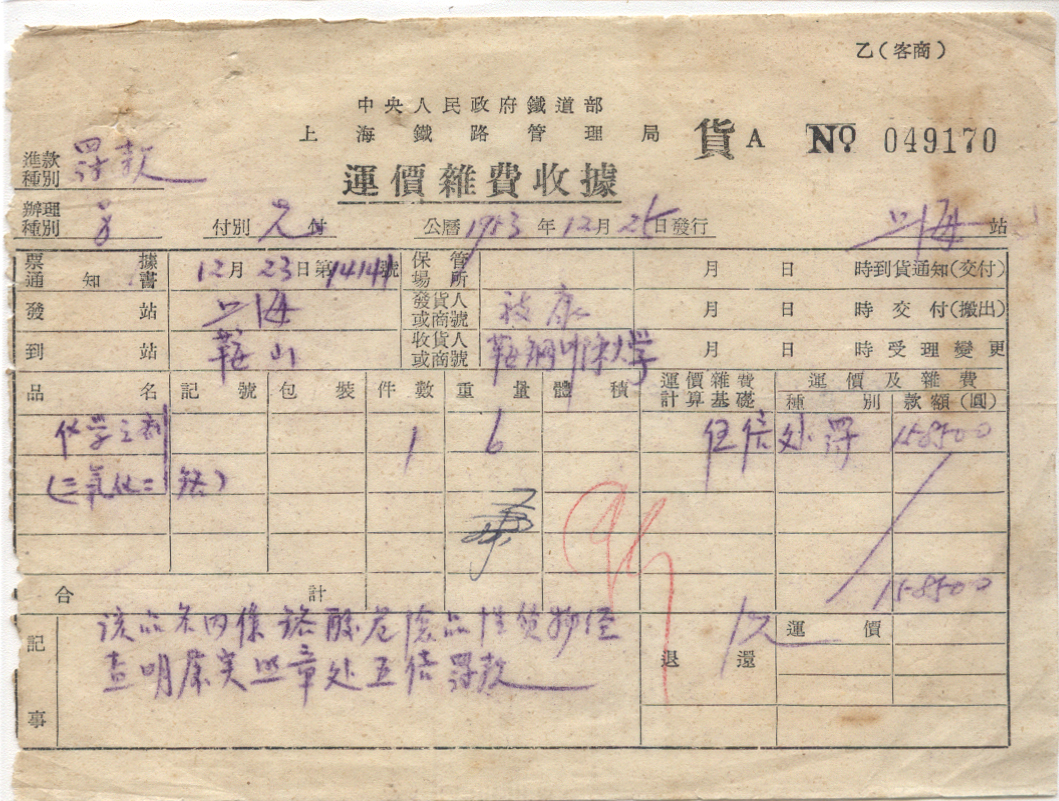 乙（客商）
中央人民政府鐵道部
上海鐵路管理局
貨A № 049170
進款種別 罚款
運價雜費收據
辦理種別
付別
公曆1953年12月25日發行
上海站
票據通知書 12月23日第14141號
保管場所
月 日 時到貨通知(交付)
發站 上海
發貨人或商號
月 日 時交付(搬出)
到站 鞍山
收貨人或商號
月 日 時受理變更
品名 記號 包裝 件數 重量 體積 運價雜費計算基礎 運價及雜費
種別 款額(圓)
化学 1 6 伍倍处罚 158500
(三氧化二铬)
合計 158500
記事
该品名内係铬酸危險品性货物经
查明属实照章处五倍罚款
退還
運價